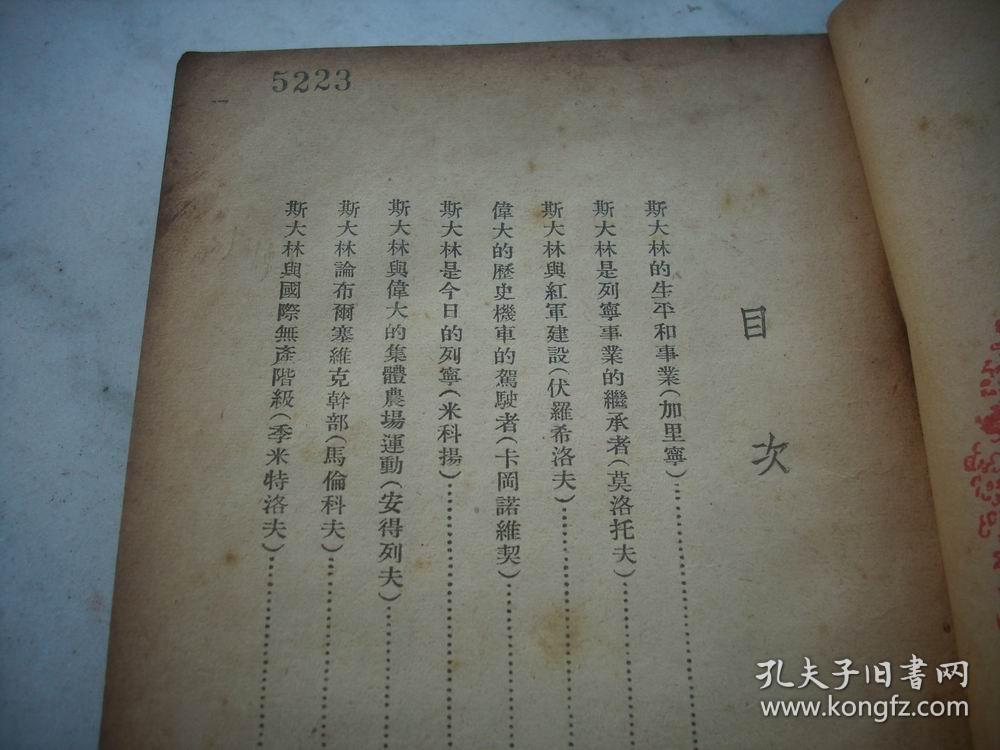 5223
目次
斯大林的生平和事業(加里寧)
斯大林是列寧事業的繼承者(莫洛托夫)
斯大林與紅軍建設(伏羅希洛夫)
偉大的歷史機車的駕駛者(卡岡諾維契)
斯大林是今日的列寧(米科揚)
斯大林與偉大的集體農場運動(安得列夫)
斯大林論布爾塞維克幹部(馬倫科夫)
斯大林與國際無產階級(季米特洛夫)
孔夫子旧书网
www.kongfz.com